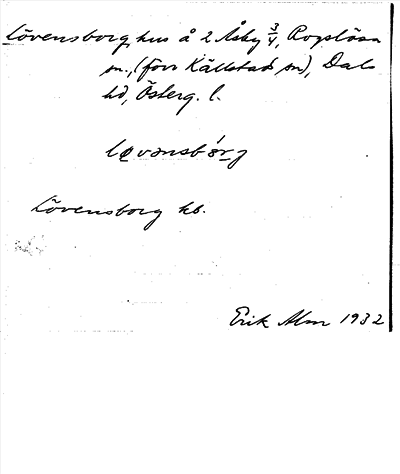 Lövensborg, hus å 2 Åsby 3/4, Rogslösa
sn., (förr Källstad sn), Dals
hd, Österg. l.
Lövensborg hs.
Erik Alm 1932